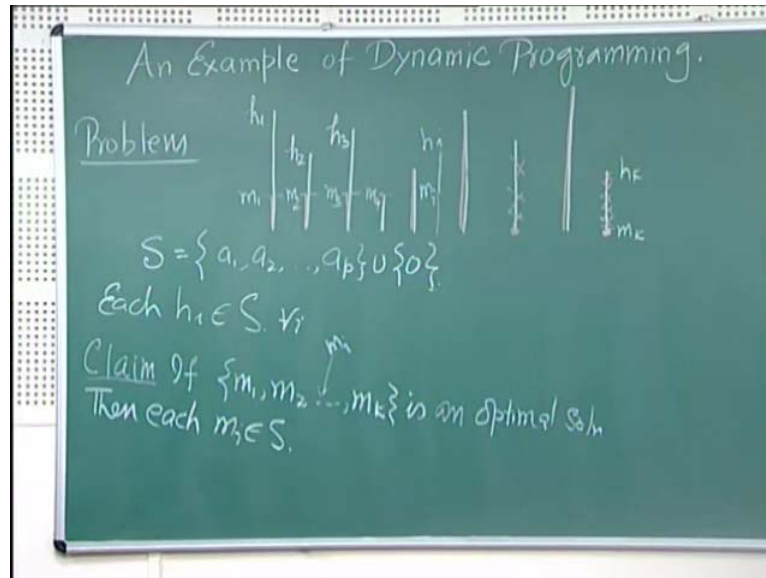 An Example of Dynamic Programming.
Problem
h₁ h₂ h₃ hᵢ hₖ
m₁ m₂ m₃ m₄ mᵢ mₖ
S = { a₁, a₂, .., aₚ} ∪ {0}
Each hᵢ ∈ S. ∀i
Claim If {m₁, m₂ ..., mₖ} is an optimal soln
Then each mᵢ ∈ S.